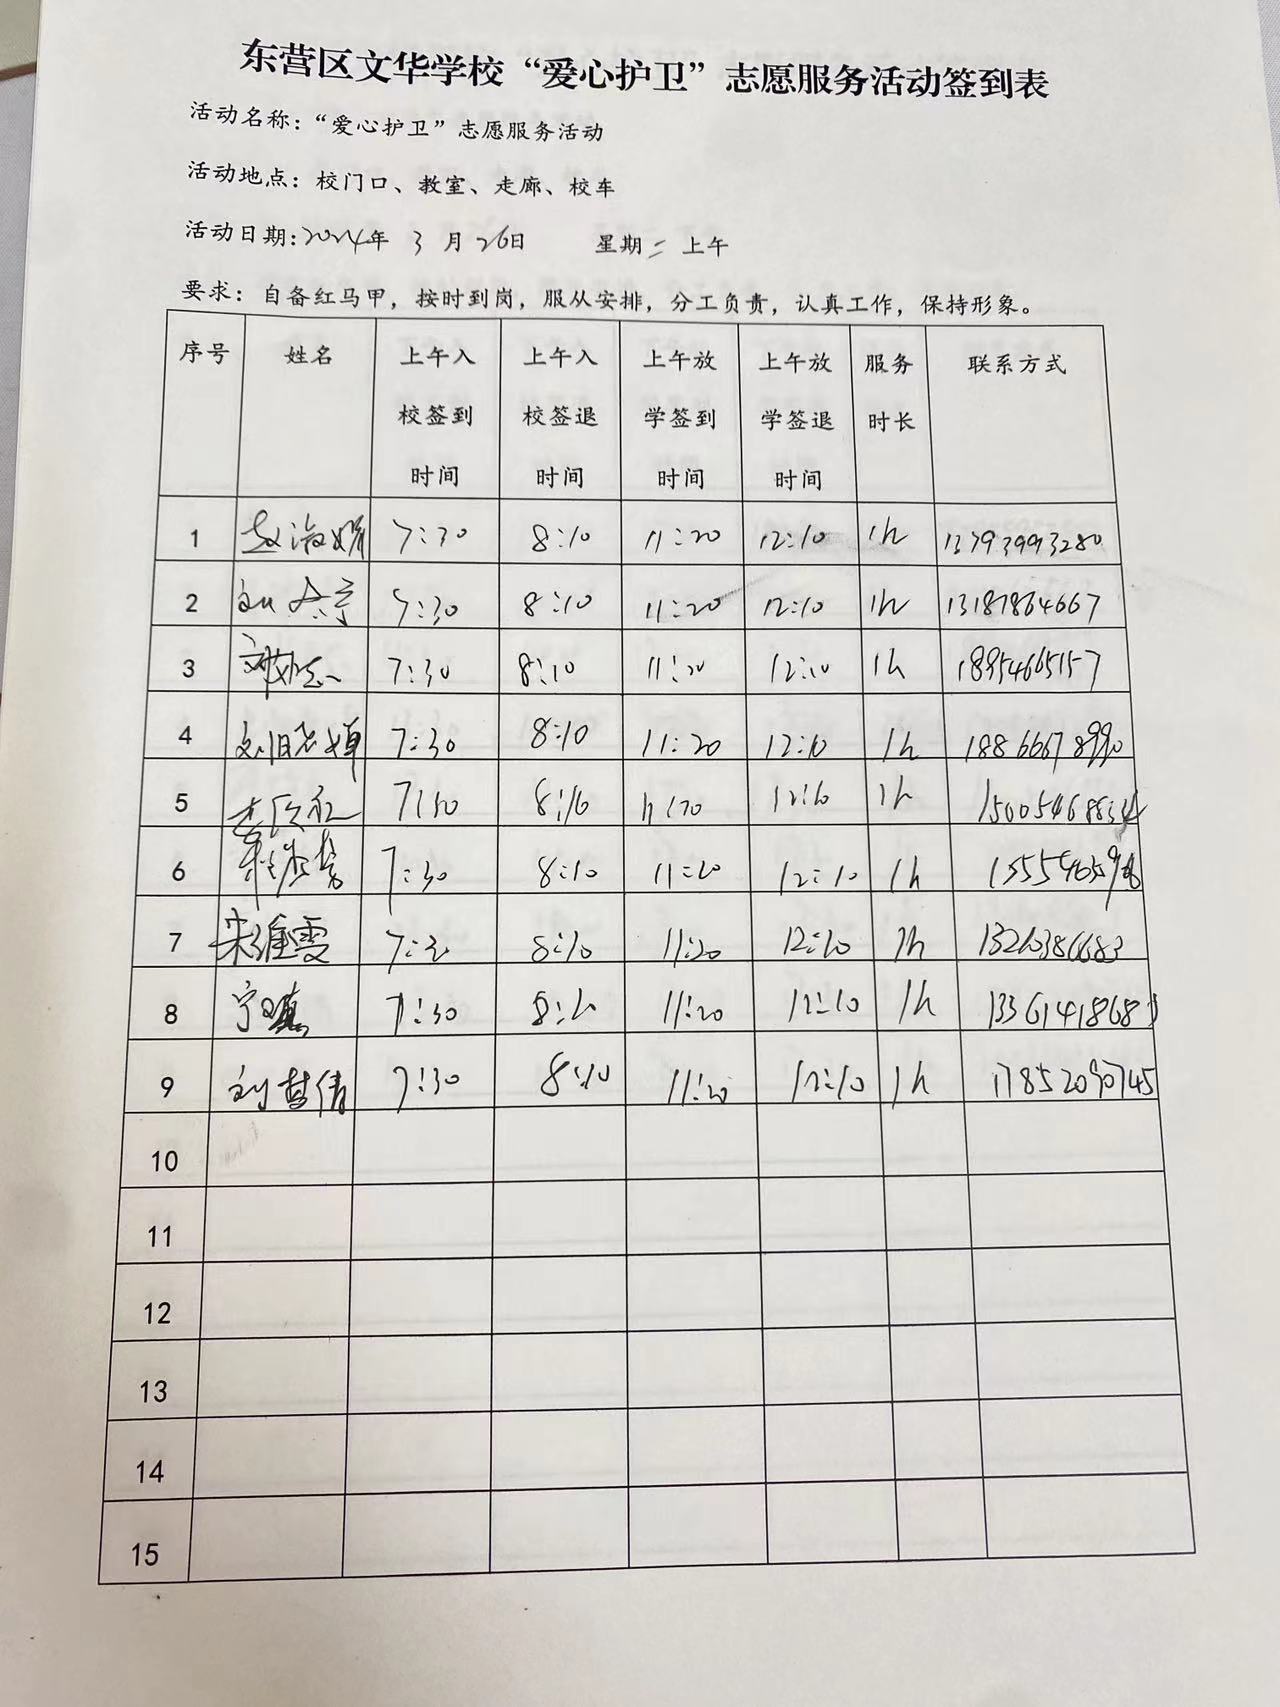 东营区文华学校“爱心护卫”志愿服务活动签到表
活动名称：“爱心护卫”志愿服务活动
活动地点：校门口、教室、走廊、校车
活动日期：2024年 3 月 26日 星期二 上午
要求：自备红马甲，按时到岗，服从安排，分工负责，认真工作，保持形象。
序号 姓名 上午入校签到时间 上午入校签退时间 上午放学签到时间 上午放学签退时间 服务时长 联系方式
1 赵淑娟 7:30 8:10 11:20 12:10 1h 13793993280
2 7:30 8:10 11:20 12:10 1h 13181864667
3 7:30 8:10 11:20 12:10 1h 18954665157
4 7:30 8:10 11:20 12:10 1h 18866678990
5 8:10 1h
6 7:30 8:10 11:20 12:10 1h
7 宋维雯 8:10 11:20 12:10 1h
8 7:30 11:20 12:10 1h
9 刘梦倩 7:30 8:10 11:20 12:10 1h 17852090745
10
11
12
13
14
15